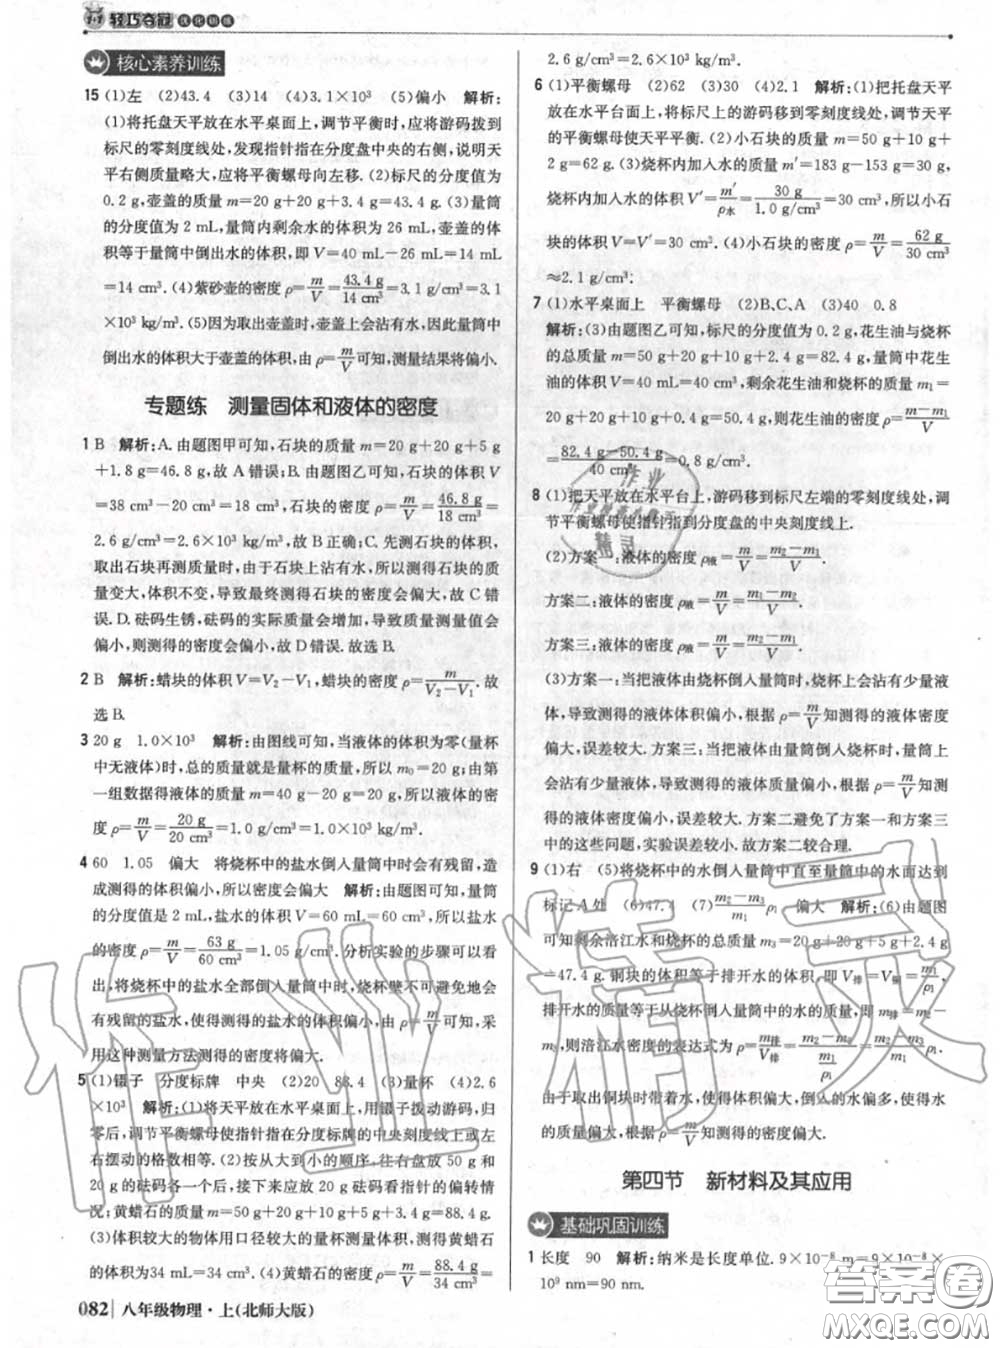 1+1 轻巧夺冠 优化训练
核心素养训练
15 (1)左 (2)43.4 (3)14 (4)3.1×10³ (5)偏小 解析:
(1)将托盘天平放在水平桌面上,调节平衡时,应将游码拨到
标尺的零刻度线处,发现指针指在分度盘中央的右侧,说明天
平右侧质量略大,应将平衡螺母向左移. (2)标尺的分度值为
0.2 g,壶盖的质量 m=20 g+20 g+3.4 g=43.4 g. (3)量筒
的分度值为 2 mL,量筒内剩余水的体积为 26 mL,壶盖的体
积等于量筒中倒出水的体积,即 V=40 mL-26 mL=14 mL
=14 cm³. (4)紫砂壶的密度 ρ=m/V=43.4 g/14 cm³=3.1 g/cm³=3.1
×10³ kg/m³. (5)因为取出壶盖时,壶盖上会沾有水,因此量筒中
倒出水的体积大于壶盖的体积,由 ρ=m/V 可知,测量结果将偏小.
专题练 测量固体和液体的密度
1 B 解析:A. 由题图甲可知,石块的质量 m=20 g+20 g+5 g
+1.8 g=46.8 g,故 A 错误;B. 由题图乙可知,石块的体积 V
=38 cm³-20 cm³=18 cm³,石块的密度 ρ=m/V=46.8 g/18 cm³=
2.6 g/cm³=2.6×10³ kg/m³,故 B 正确;C. 先测石块的体积,
取出石块再测质量时,由于石块上沾有水,所以测得石块的质
量变大,体积不变,导致最终测得石块的密度会偏大,故 C 错
误. D. 砝码生锈,砝码的实际质量会增加,导致质量测量值会
偏小,则测得的密度会偏小,故 D 错误. 故选 B.
2 B 解析:蜡块的体积 V=V₂-V₁,蜡块的密度 ρ=m/(V₂-V₁). 故
选 B.
3 20 g 1.0×10³ 解析:由图线可知,当液体的体积为零(量杯
中无液体)时,总的质量就是量杯的质量,所以 m₀=20 g;由第
一组数据得液体的质量 m=40 g-20 g=20 g,所以液体的密
度 ρ=m/V=20 g/20 cm³=1.0 g/cm³=1.0×10³ kg/m³.
4 60 1.05 偏大 将烧杯中的盐水倒入量筒中时会有残留,造
成测得的体积偏小,所以密度会偏大 解析:由题图可知,量筒
的分度值是 2 mL,盐水的体积 V=60 mL=60 cm³,所以盐水
的密度 ρ=m/V=63 g/60 cm³=1.05 g/cm³. 分析实验的步骤可以看
出,将烧杯中的盐水全部倒入量筒中时,烧杯壁不可避免地会
有残留的盐水,使得测得的盐水的体积偏小,由 ρ=m/V 可知,采
用这种测量方法测得的密度将偏大.
5 (1)镊子 分度标牌 中央 (2)20 88.4 (3)量杯 (4)2.6
×10³ 解析:(1)将天平放在水平桌面上,用镊子拨动游码,归
零后,调节平衡螺母使指针指在分度标牌的中央刻度线上或左
右摆动的格数相等. (2)按从大到小的顺序,往右盘放 50 g 和
20 g 的砝码各一个后,还需根据添加 20 g 砝码后指针的偏转情况
继续操作;黄蜡石的质量 m=50 g+20 g+15 g+3.4 g=88.4 g.
(3)体积较大的物体用口径较大的量杯测量体积. (4)黄蜡石
的体积为34 mL=34 cm³,黄蜡石的密度 ρ=m/V=88.4 g/34 cm³=
082 八年级物理·上(北师大版)
2.6 g/cm³=2.6×10³ kg/m³.
6 (1)平衡螺母 (2)62 (3)30 (4)2.1 解析:(1)把托盘天平
放在水平台面上,将标尺上的游码移到零刻度线处,调节天平
的平衡螺母使天平平衡. (2)小石块的质量 m=50 g+10 g+
2 g=62 g. (3)烧杯内加入水的质量 m′=183 g-153 g=30 g,
烧杯内加入水的体积 V′=m′/ρ水=30 g/1.0 g/cm³=30 cm³,所以小石
块的体积 V=V′=30 cm³. (4)小石块的密度 ρ=m/V=62 g/30 cm³
≈2.1 g/cm³.
7 (1)水平桌面上 平衡螺母 (2)B、C、A (3)40 0.8
解析:(3)由题图乙可知,标尺的分度值为 0.2 g,花生油与烧杯
的总质量 m=50 g+20 g+10 g+2.4 g=82.4 g,量筒中花生
油的体积为 V=40 mL=40 cm³,剩余花生油和烧杯的质量 m₁=
20 g+20 g+10 g+0.4 g=50.4 g,则花生油的密度 ρ=(m-m₁)/V
=(82.4 g-50.4 g)/40 cm³=0.8 g/cm³.
8 (1)把天平放在水平台上,游码移到标尺左端的零刻度线处,调
节平衡螺母使指针指到分度盘的中央刻度线上.
(2)方案一:液体的密度 ρ液=m/V=(m₂-m₁)/V
方案二:液体的密度 ρ液=m/V=(m₁-m₂)/V
方案三:液体的密度 ρ液=m/V=(m₂-m₁)/V
(3)方案一:当把液体由烧杯倒入量筒时,烧杯上会沾有少量液
体,导致测得的液体体积偏小,根据 ρ=m/V 知测得的液体的密度
偏大,误差较大. 方案三:当把液体由量筒倒入烧杯时,量筒上
会沾有少量液体,导致测得的液体的质量偏小,根据 ρ=m/V 知测
得的液体的密度偏小,误差较大. 方案二避免了方案一、方案三
中的这些问题,实验误差较小. 故方案二较合理.
9 (1)右 (5)将烧杯中的水倒入量筒中直至量筒中的水面达到
标记 A 处 (6)47.4 (7)(m₂-m₃)/m₁ ρ₁ 偏大 解析:(6)由题图
可知剩余涪江水和烧杯的总质量 m₃=20 g+20 g+5 g+2.4 g
=47.4 g. 铜块的体积等于排开水的体积,即 V排=V=m₁/ρ₁,
排开水的质量等于从烧杯倒入量筒中的水的质量,
则涪江水密度的表达式为
由于取出铜块时带着水,使得体积偏大,倒入的水偏多,使得水
的质量偏大,根据 ρ=m/V 知测得的密度偏大.
第四节 新材料及其应用
基础巩固训练
1 长度 90 解析:纳米是长度单位. 9×10⁻⁸ m=9×10⁻⁸×
10⁹ nm=90 nm.
作业精灵
答案圈
MXQE.COM